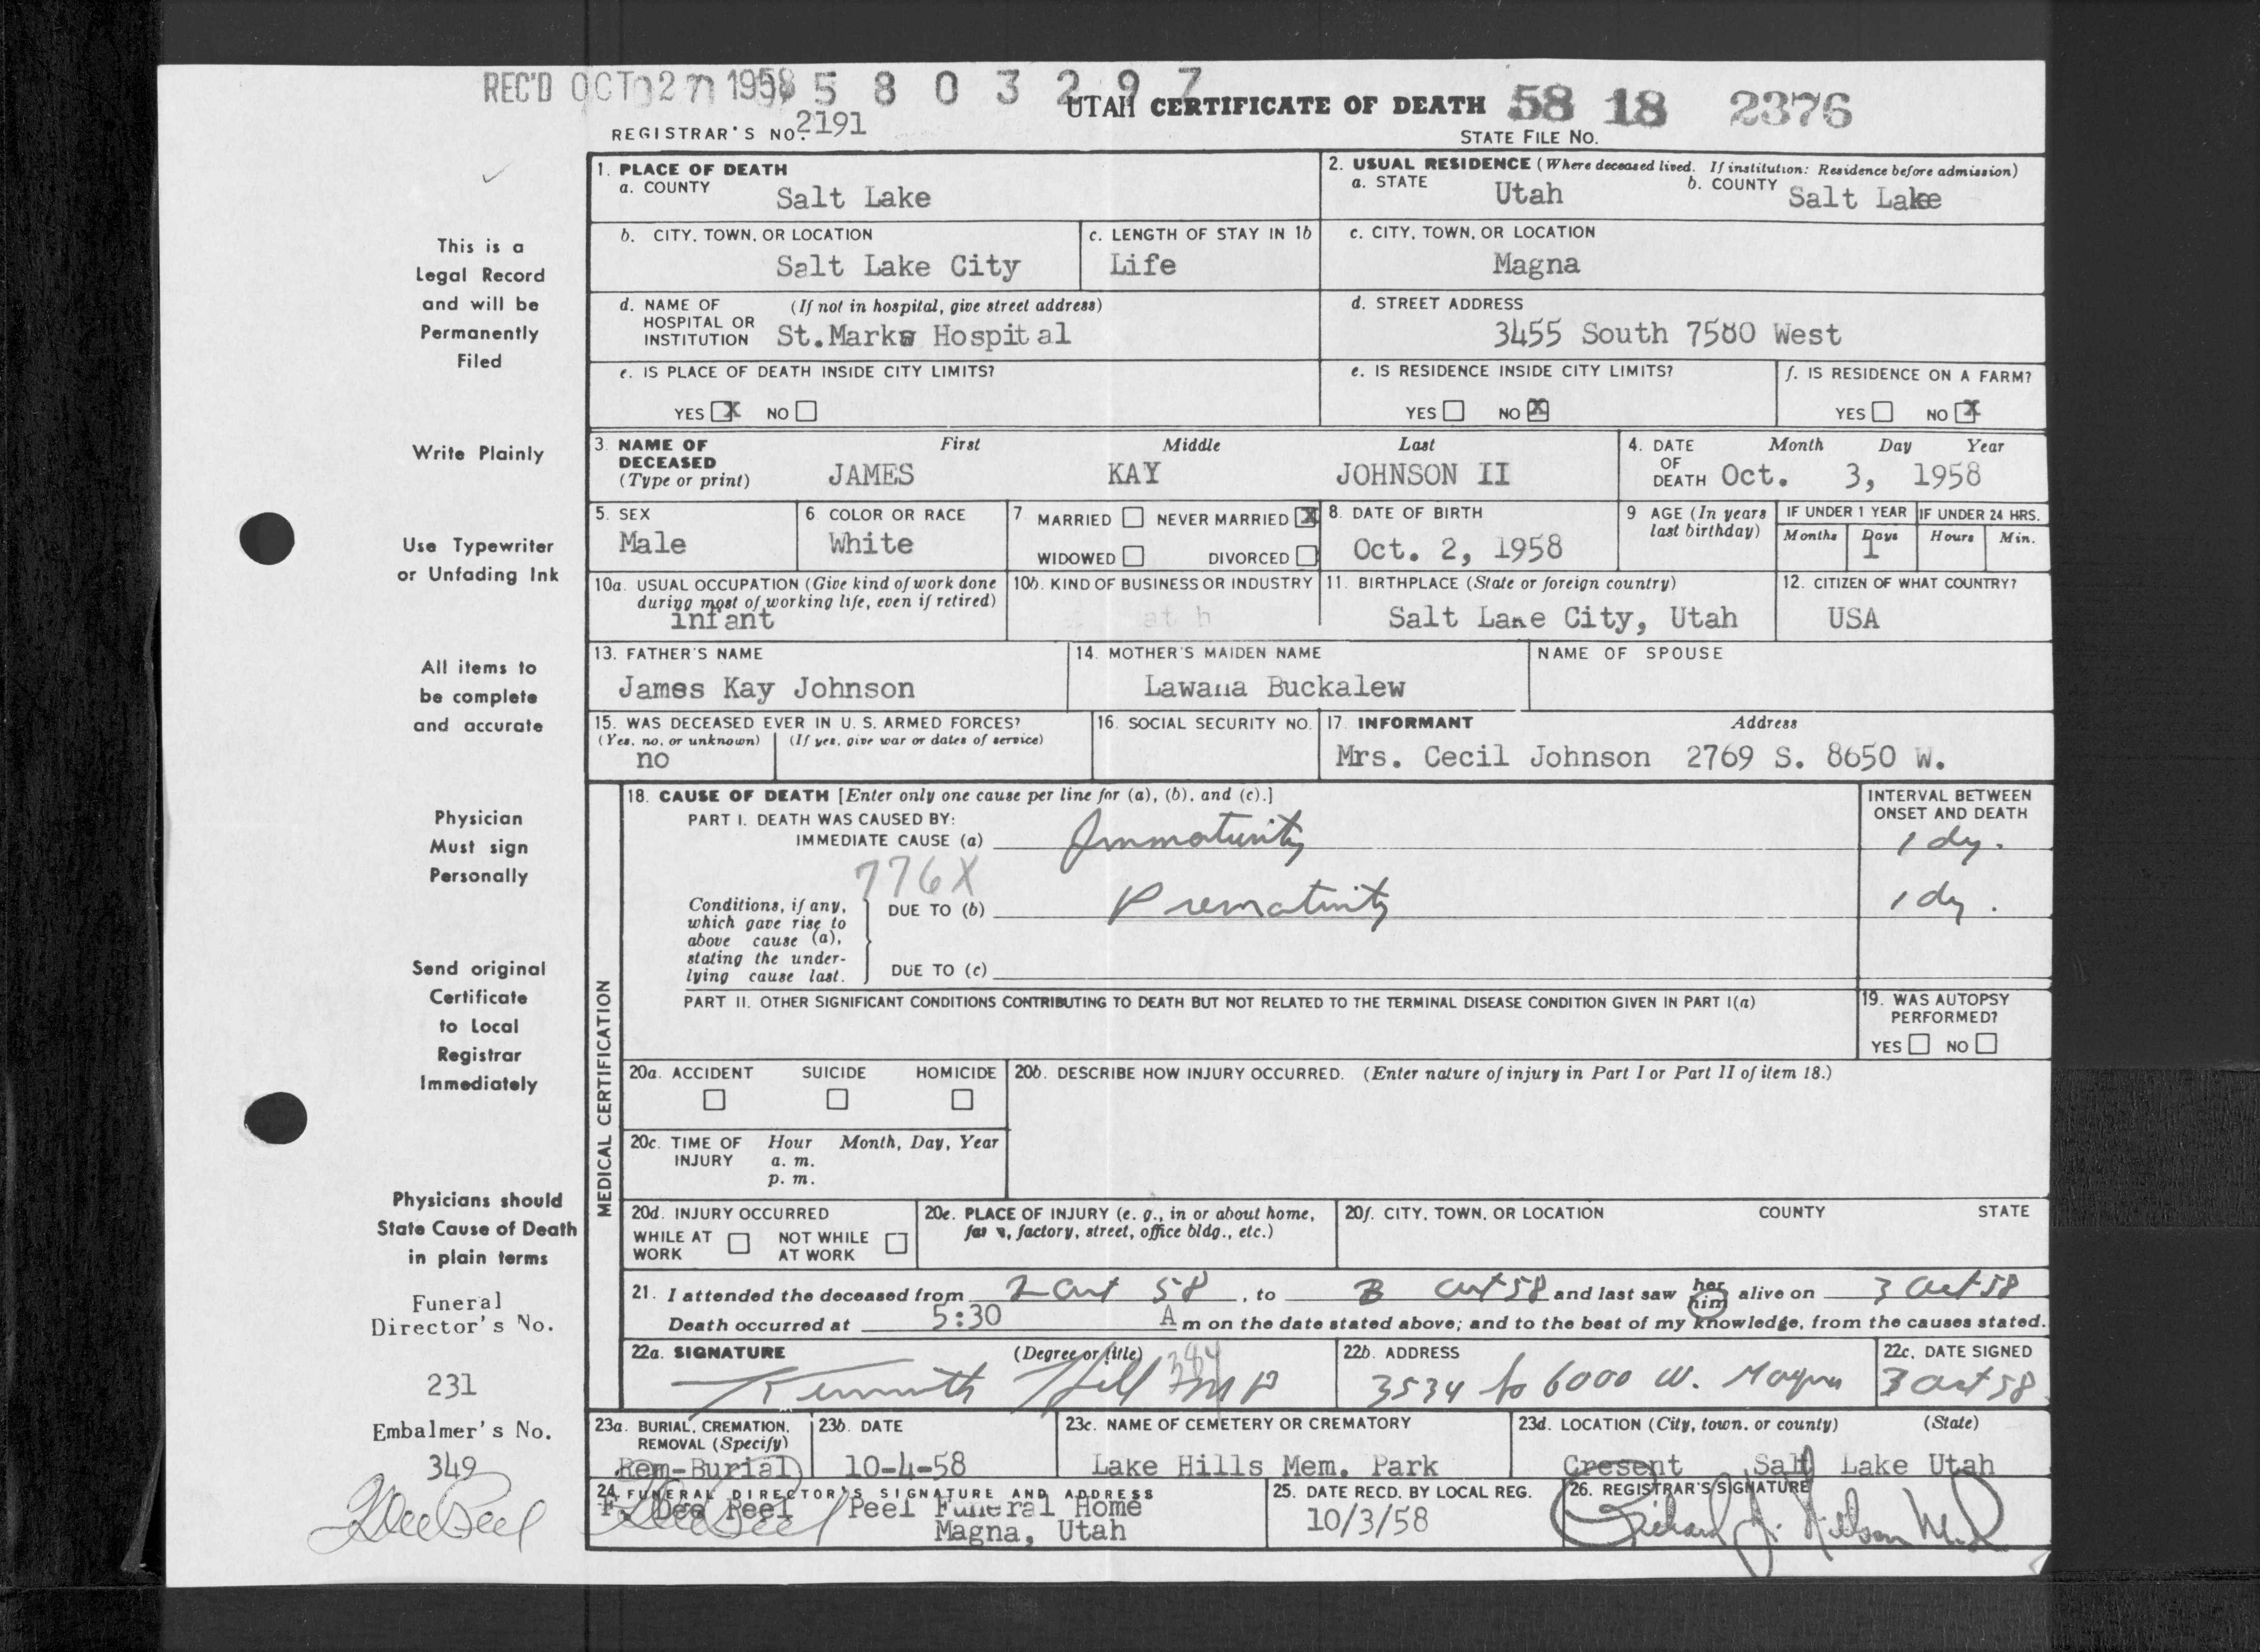 REC'D OCT 27 1958 5 8 0 3 2 9 7
UTAH CERTIFICATE OF DEATH 58 18 2376
REGISTRAR'S NO. 2191
STATE FILE NO.
This is a
Legal Record
and will be
Permanently
Filed
Write Plainly
Use Typewriter
or Unfading Ink
All items to
be complete
and accurate
Physician
Must sign
Personally
Send original
Certificate
to Local
Registrar
Immediately
Physicians should
State Cause of Death
in plain terms
Funeral
Director's No.
231
Embalmer's No.
349
1. PLACE OF DEATH
a. COUNTY
Salt Lake
2. USUAL RESIDENCE (Where deceased lived. If institution: Residence before admission)
a. STATE Utah b. COUNTY Salt Lake
b. CITY, TOWN, OR LOCATION
Salt Lake City
c. LENGTH OF STAY IN 1b
Life
c. CITY, TOWN, OR LOCATION
Magna
d. NAME OF HOSPITAL OR INSTITUTION (If not in hospital, give street address)
St.Marks Hospital
d. STREET ADDRESS
3455 South 7580 West
e. IS PLACE OF DEATH INSIDE CITY LIMITS?
YES X NO
e. IS RESIDENCE INSIDE CITY LIMITS?
YES NO X
f. IS RESIDENCE ON A FARM?
YES NO X
3. NAME OF DECEASED (Type or print)
First Middle Last
JAMES KAY JOHNSON II
4. DATE OF DEATH Month Day Year
Oct. 3, 1958
5. SEX
Male
6. COLOR OR RACE
White
7 MARRIED NEVER MARRIED X
WIDOWED DIVORCED
8. DATE OF BIRTH
Oct. 2, 1958
9 AGE (In years last birthday)
IF UNDER 1 YEAR IF UNDER 24 HRS.
Months Days Hours Min.
1
10a. USUAL OCCUPATION (Give kind of work done during most of working life, even if retired)
infant
10b. KIND OF BUSINESS OR INDUSTRY
11. BIRTHPLACE (State or foreign country)
Salt Lake City, Utah
12. CITIZEN OF WHAT COUNTRY?
USA
13. FATHER'S NAME
James Kay Johnson
14. MOTHER'S MAIDEN NAME
Lawana Buckalew
NAME OF SPOUSE
15. WAS DECEASED EVER IN U. S. ARMED FORCES?
(Yes, no, or unknown) (If yes, give war or dates of service)
no
16. SOCIAL SECURITY NO.
17. INFORMANT Address
Mrs. Cecil Johnson 2769 S. 8650 W.
MEDICAL CERTIFICATION
18. CAUSE OF DEATH [Enter only one cause per line for (a), (b), and (c).]
PART I. DEATH WAS CAUSED BY:
IMMEDIATE CAUSE (a) Immaturity
776X
Conditions, if any, which gave rise to above cause (a), stating the underlying cause last.
DUE TO (b) Prematurity
DUE TO (c)
INTERVAL BETWEEN ONSET AND DEATH
1 dy.
1 dy.
PART II. OTHER SIGNIFICANT CONDITIONS CONTRIBUTING TO DEATH BUT NOT RELATED TO THE TERMINAL DISEASE CONDITION GIVEN IN PART I(a)
19. WAS AUTOPSY PERFORMED?
YES NO
20a. ACCIDENT SUICIDE HOMICIDE
20b. DESCRIBE HOW INJURY OCCURRED. (Enter nature of injury in Part I or Part II of item 18.)
20c. TIME OF INJURY Hour Month, Day, Year
a. m.
p. m.
20d. INJURY OCCURRED
WHILE AT WORK NOT WHILE AT WORK
20e. PLACE OF INJURY (e. g., in or about home, farm, factory, street, office bldg., etc.)
20f. CITY, TOWN, OR LOCATION COUNTY STATE
21. I attended the deceased from 2 Oct 58, to 3 Oct 58 and last saw her him alive on 3 Oct 58
Death occurred at 5:30 A m on the date stated above; and to the best of my knowledge, from the causes stated.
22a. SIGNATURE (Degree or title)
Kenneth Hill MD
22b. ADDRESS
3534 So 6000 W. Magna
22c. DATE SIGNED
3 Oct 58
23a. BURIAL, CREMATION, REMOVAL (Specify)
Rem-Burial
23b. DATE
10-4-58
23c. NAME OF CEMETERY OR CREMATORY
Lake Hills Mem. Park
23d. LOCATION (City, town, or county) (State)
Cresent Salt Lake Utah
24. FUNERAL DIRECTOR'S SIGNATURE AND ADDRESS
F. Dee Peel Peel Funeral Home
Magna, Utah
25. DATE RECD. BY LOCAL REG.
10/3/58
26. REGISTRAR'S SIGNATURE
Richard J. Nelson